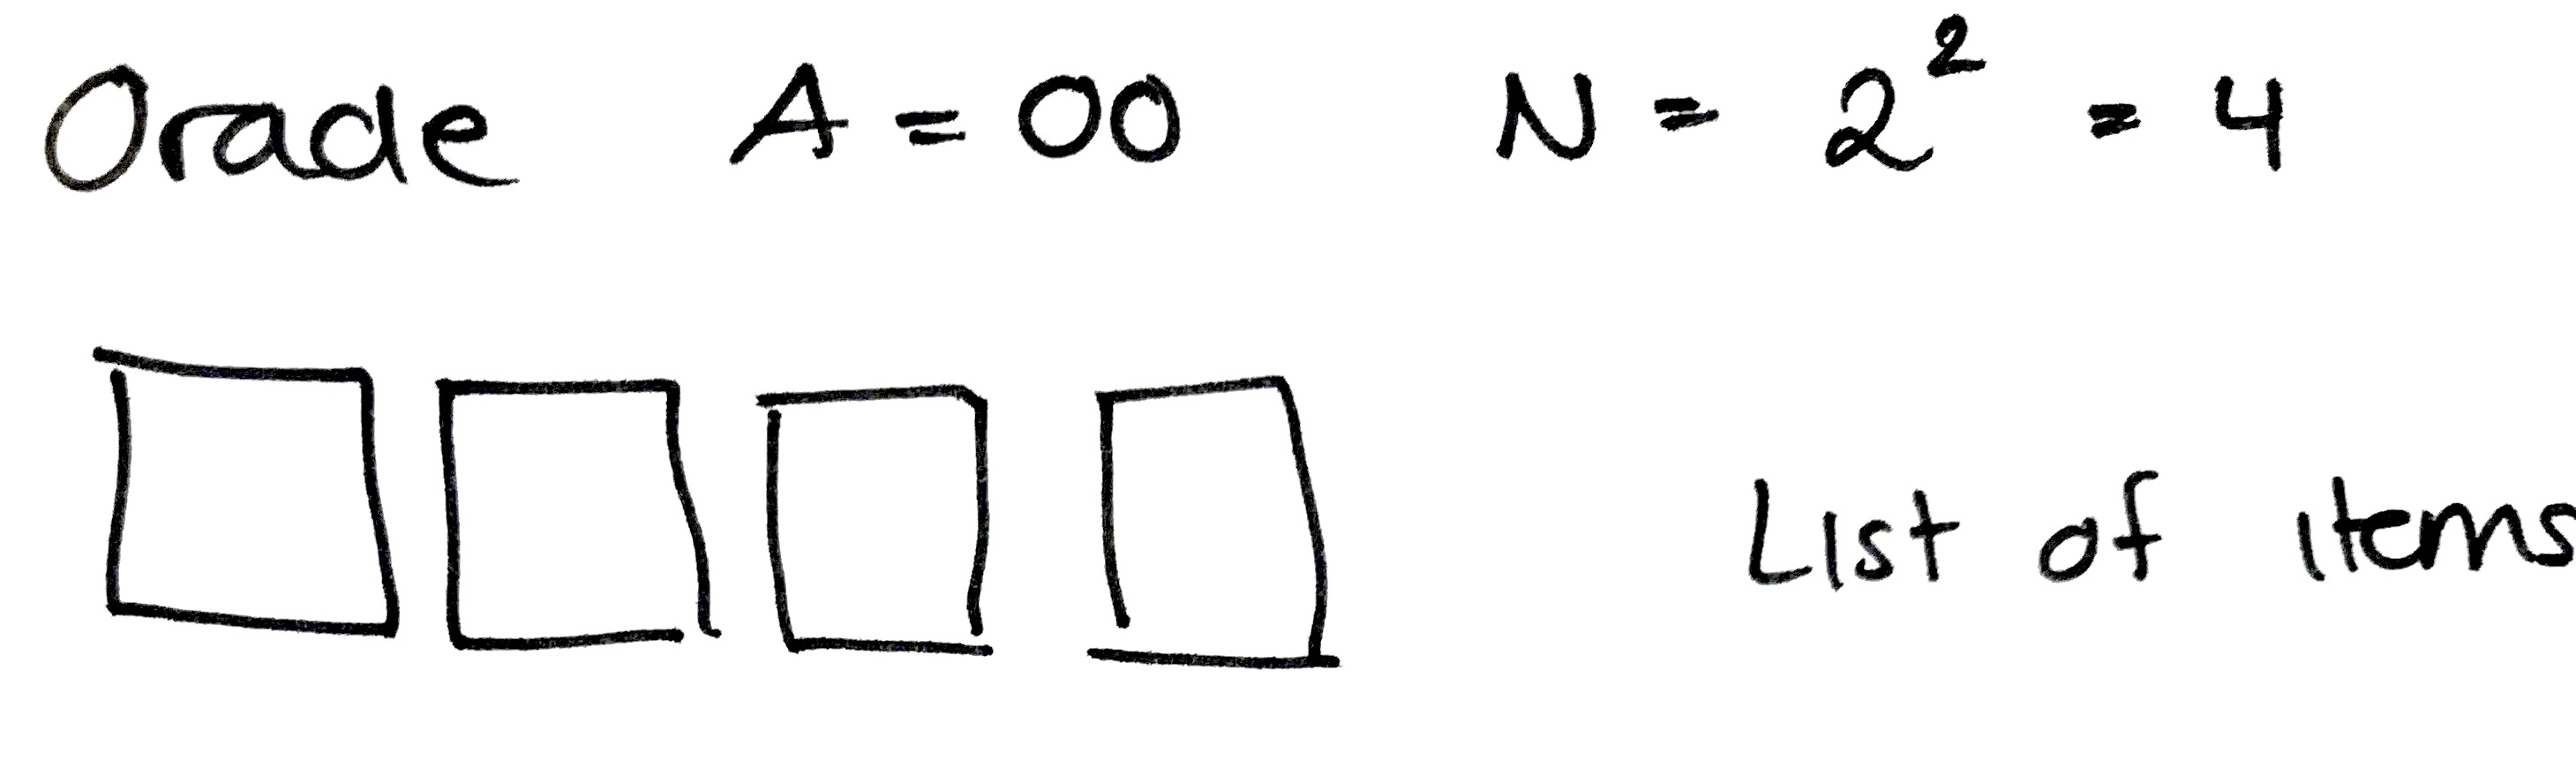 Oracle A = 00 N = 2² = 4
List of items